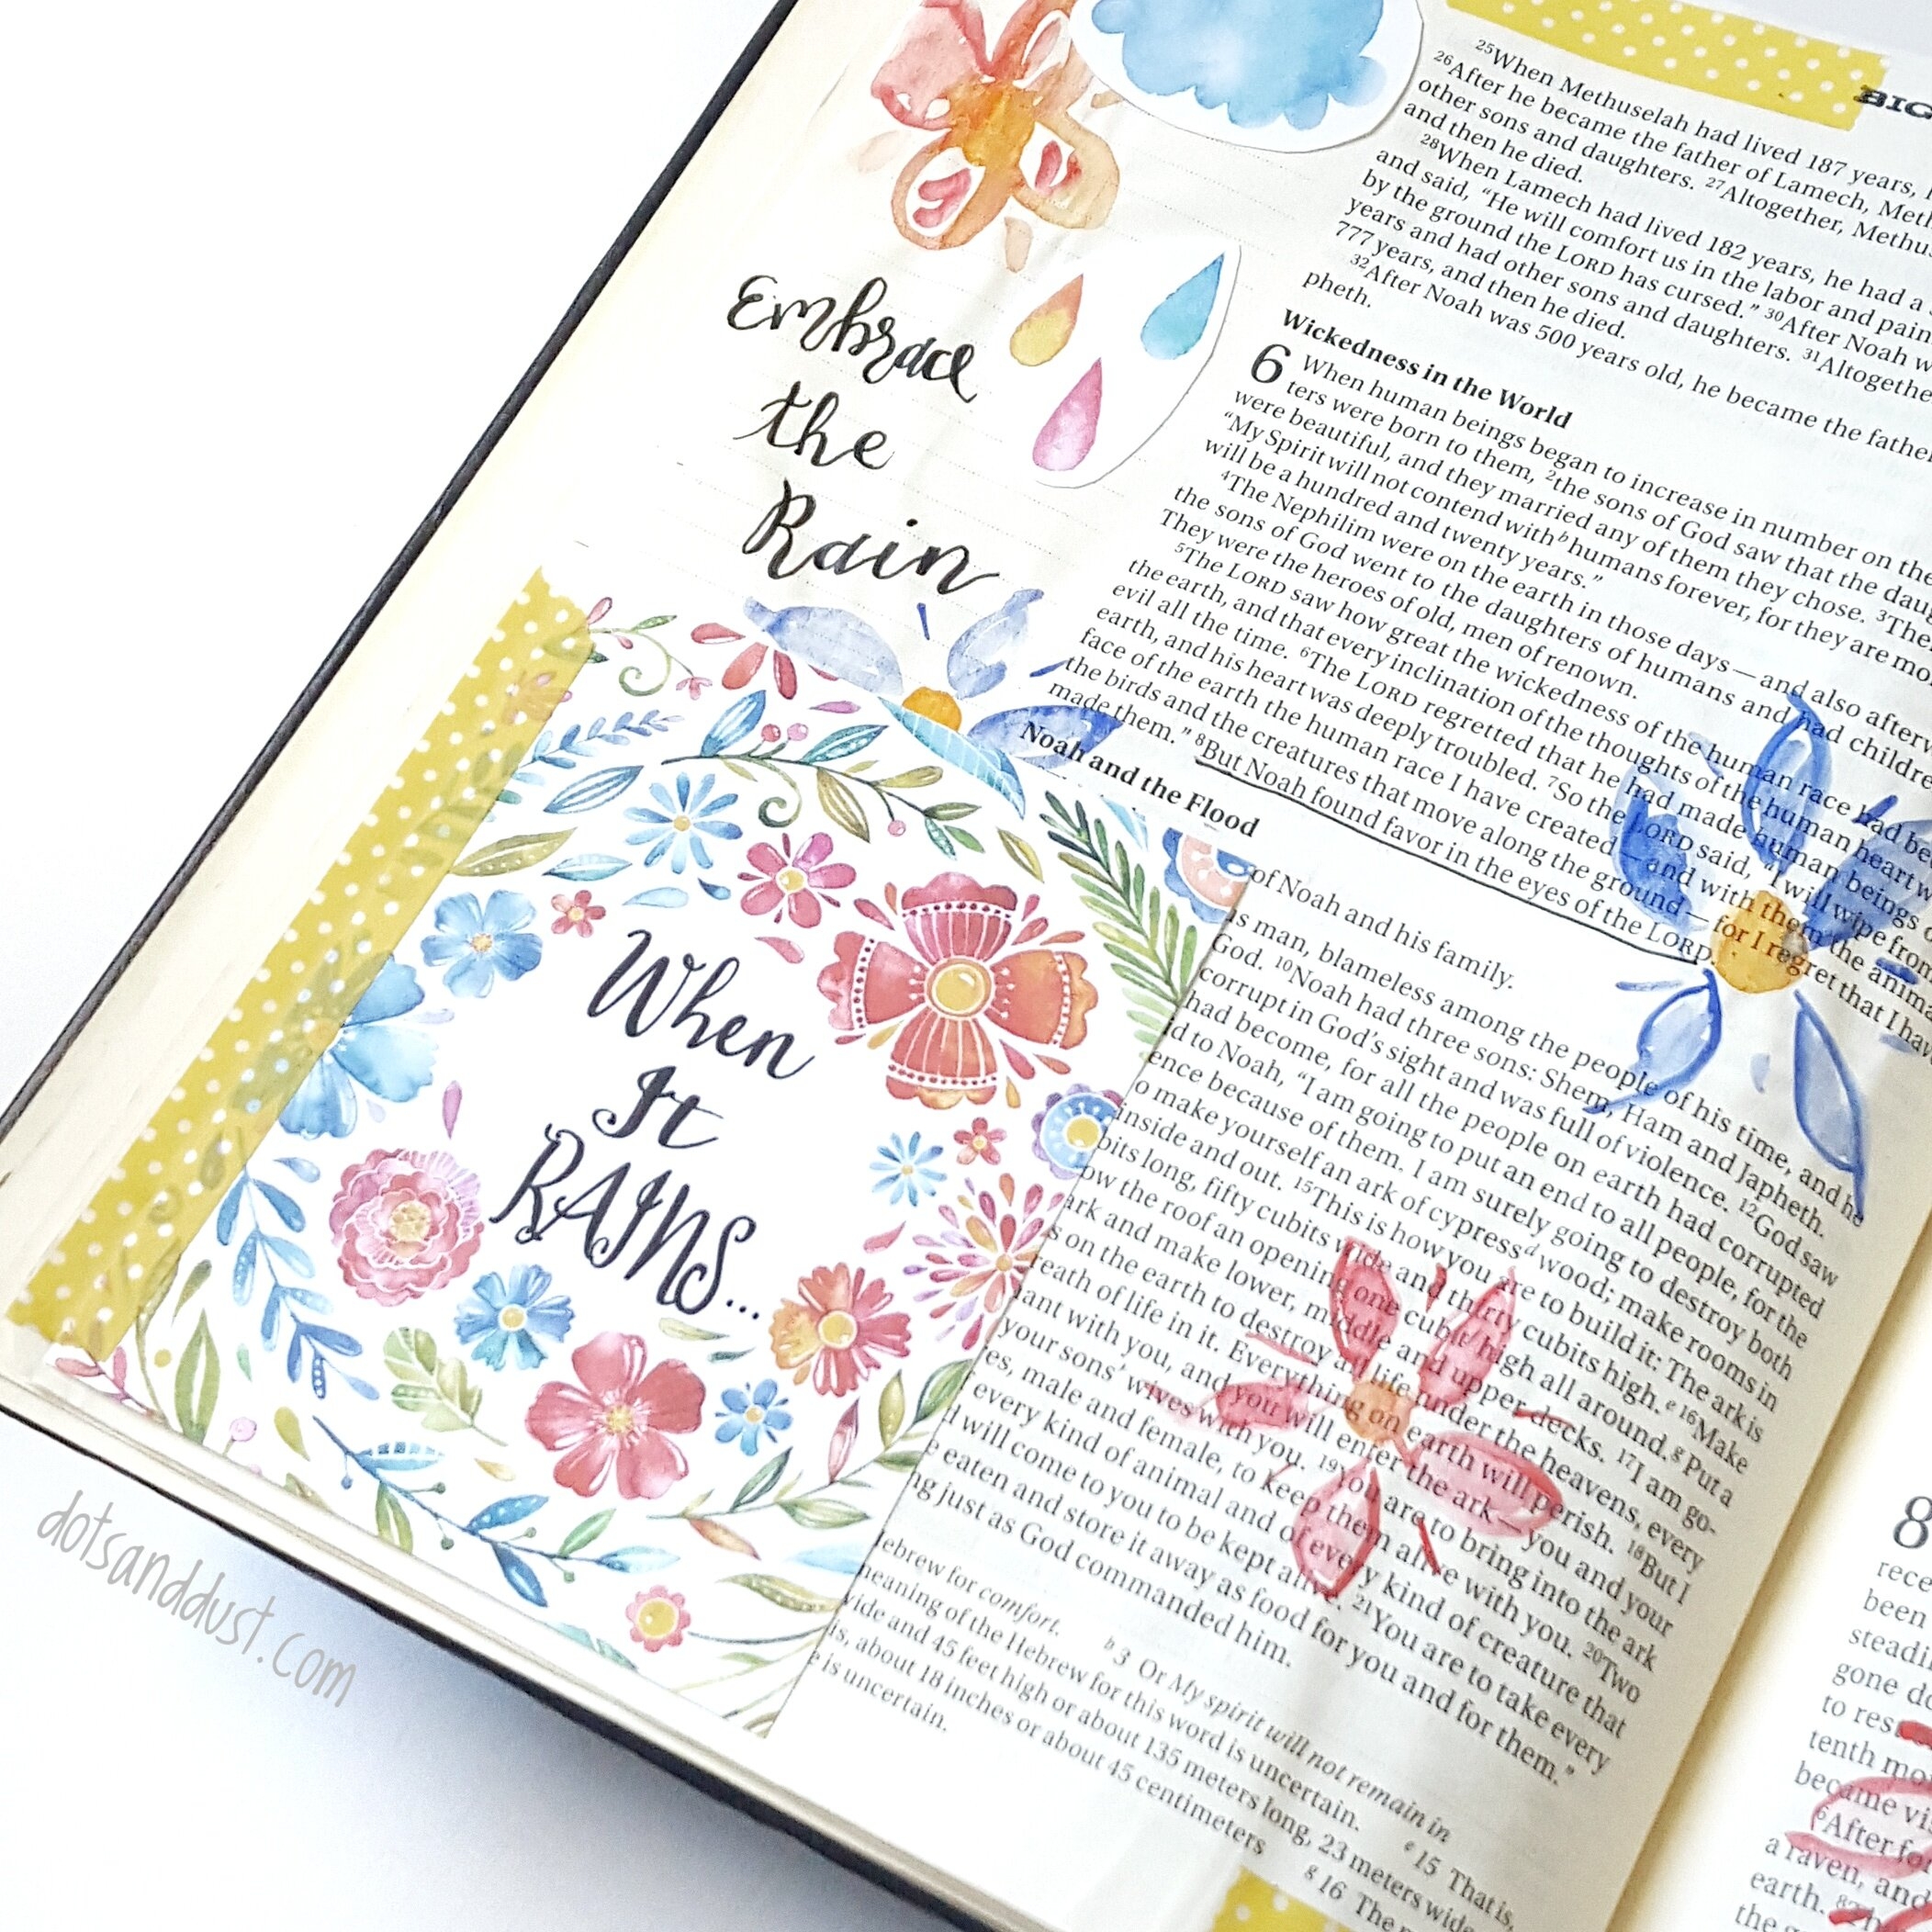 Embrace
the
Rain
When
It
RAINS...
dotsanddust.com
BIG
²⁵When Methuselah had lived 187 years,
²⁶After he became the father of Lamech,
other sons and daughters. ²⁷Altogether,
and then he died.
²⁸When Lamech had lived 182 years, he had a
and said, “He will comfort us in the labor and pain
by the ground the LORD has cursed.” ³⁰After Noah
years and had other sons and daughters. ³¹Altogether
777 years, and then he died.
³²After Noah was 500 years old, he became the father
pheth.
Wickedness in the World
6 When human beings began to increase in number on the
ters were born to them, ²the sons of God saw that the
were beautiful, and they married any of them they chose. ³
“My Spirit will not contend withᵇ humans forever, for they are
will be a hundred and twenty years.”
⁴The Nephilim were on the earth in those days—and also
the sons of God went to the daughters of humans and had
They were the heroes of old, men of renown.
⁵The LORD saw how great the wickedness of the human race had
the earth, and that every inclination of the thoughts of the human heart
evil all the time. ⁶The LORD regretted that he had made human beings
earth, and his heart was deeply troubled. ⁷So the LORD said, “I will wipe from
face of the earth the human race I have created—and with them the
the birds and the creatures that move along the ground—for I regret that I
made them.” ⁸But Noah found favor in the eyes of the LORD.
Noah and the Flood
of Noah and his family.
man, blameless among the people of his time, and he
God. ¹⁰Noah had three sons: Shem, Ham and Japheth.
corrupt in God’s sight and was full of violence. ¹²God saw
had become, for all the people on earth had corrupted
to Noah, “I am going to put an end to all people, for the
because of them. I am surely going to destroy both
make yourself an ark of cypressᵈ wood; make rooms in
inside and out. ¹⁵This is how you are to build it: The ark is
long, fifty cubits wide and thirty cubits high.ᵉ ¹⁶Make
the roof an opening one cubit high all around.ᵍ Put a
and make lower, middle and upper decks. ¹⁷I am go-
on the earth to destroy all life under the heavens, every
of life in it. Everything on earth will perish. ¹⁸But I
with you, and you will enter the ark—you and your
your sons’ wives with you. ¹⁹You are to bring into the ark
male and female, to keep them alive with you. ²⁰Two
every kind of animal and of every kind of creature that
will come to you to be kept alive. ²¹You are to take every
eaten and store it away as food for you and for them.”
just as God commanded him.
for comfort. ᵇ 3 Or My spirit will not remain in
meaning of the Hebrew for this word is uncertain. ᵉ 15 That is,
and 45 feet high or about 135 meters long, 23 meters wide
about 18 inches or about 45 centimeters ᵍ 16 The
is uncertain.
8
been
gone
to
tenth
became
⁶After
a raven, and
earth.
the